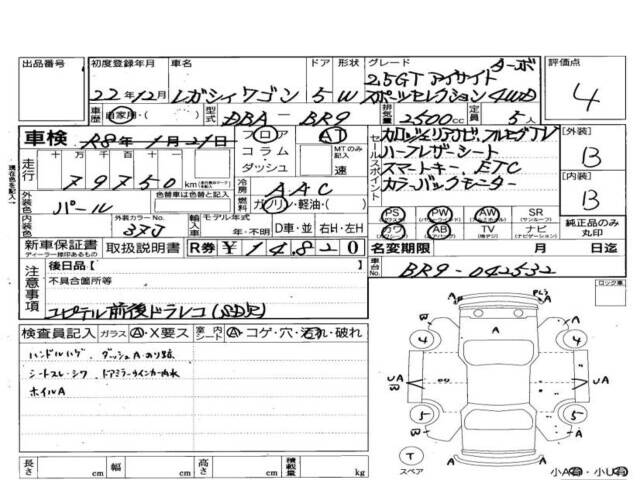 出品番号 初度登録年月 車名 ドア 形状 グレード ターボ 評価点
22年12月 レガシィワゴン 5 W 2.5GT アイサイト
スポーツセレクション 4WD 4
車歴 自家用・( ) 型式 DBA-BR9 排気量 2500cc 定員 5人
車検 R8年1月21日 フロア AT
コラム MTのみ記入
ダッシュ 速
走行 十万 万 千 百 十 一
79750 km
冷房 AAC
燃料 ガソリン・軽油・( )
セールスポイント
カロッツェリアナビ、フルセグTV
ハーフレザーシート
スマートキー、ETC
カラーバックモニター
[外装] B
[内装] B
外装色 パール 色替車は色替と記入
内装色 外装カラーNo. 37J
輸入車 モデル年式 年・不明 D車・並 右H・左H
PS PW AW SR
(パワーウィンドウ) (サンルーフ)
カワ AB TV ナビ
(エアバッグ) (ナビゲーション)
純正品のみ丸印
新車保証書 取扱説明書 R券 ¥14,820
ディーラー捺印あるもの
名変期限 月 日迄
車台No. BR9-042532
注意事項
後日品【 】
不具合箇所等
ユピテル前後ドラレコ(SD欠)
ロック車
検査員記入 ガラス A・X要ス 室内シート A・コゲ・穴・汚れ・破れ
シートスレ・シワ
ホイルA
長さ cm 幅 cm 高さ cm 積載量 kg
A A
4 4
A UA
5 5
T スペア
A A
小A有・小U有
現在色を記入